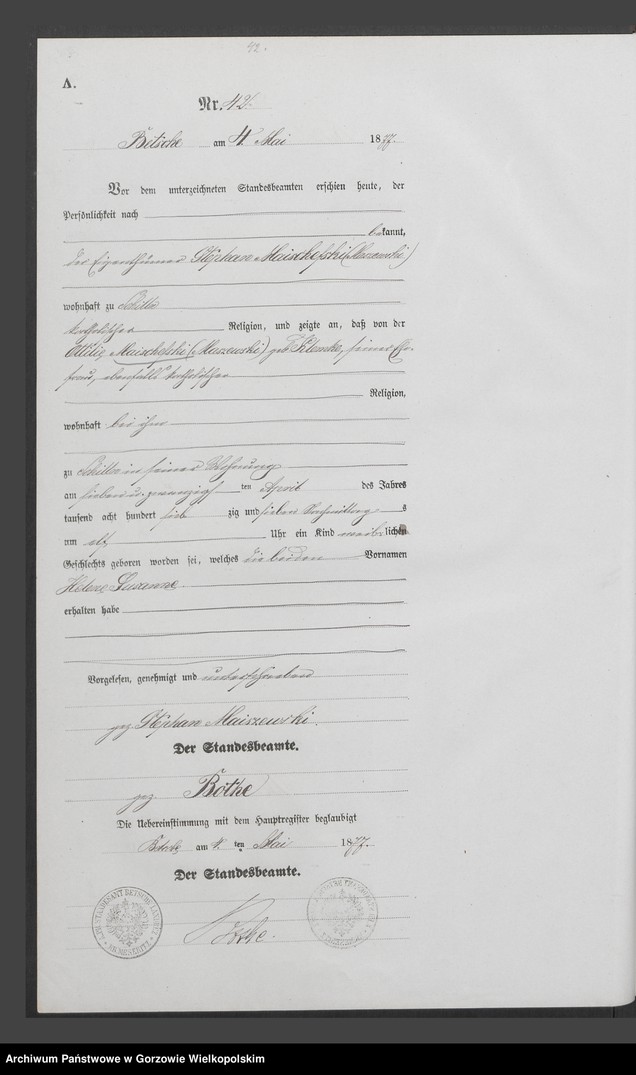 42.
A.
Nr. 42.
Betsche am 4. Mai 1877.
Vor dem unterzeichneten Standesbeamten erschien heute, der
Persönlichkeit nach
bekannt,
der Eigenthümer Stephan Maischefski (Maszewski)
wohnhaft zu Schilln
katholischer Religion, und zeigte an, daß von der
Ottilie Maischefski (Maszewski) geb. Klemke, seiner Ehe-
frau, ebenfalls katholischer
Religion,
wohnhaft bei ihm
zu Schilln in seiner Wohnung
am sieben u. zwanzigsten April des Jahres
tausend acht hundert siebzig und sieben Vormittags
um elf Uhr ein Kind weiblichen
Geschlechts geboren worden sei, welches die beiden Vornamen
Helene Susanne
erhalten habe
Vorgelesen, genehmigt und unterschrieben
gez. Stephan Maiszewski.
Der Standesbeamte.
gez. Böthe
Die Uebereinstimmung mit dem Hauptregister beglaubigt
Betsche am 4. ten Mai 1877.
Der Standesbeamte.
Archiwum Państwowe w Gorzowie Wielkopolskim